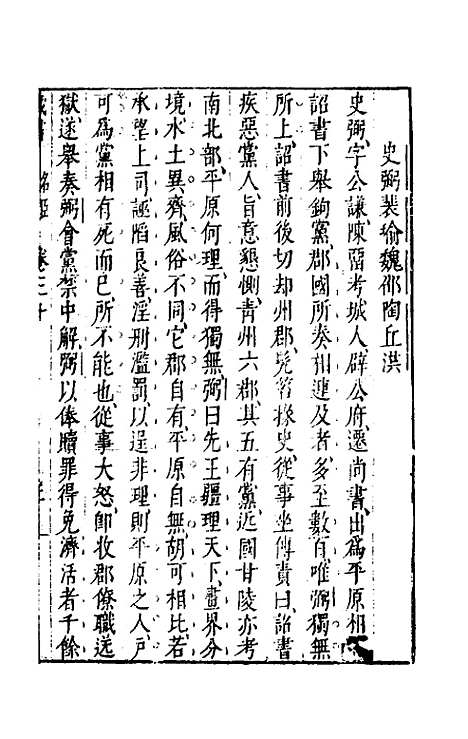 史弼裴瑜魏邵陶丘洪
史弼字公謙陳留考城人辟公府遷尚書出爲平原相
詔書下舉鉤黨郡國所奏相連及者多至數百唯弼獨無
所上詔書前後切却州郡髡笞掾史從事坐傳責曰詔書
疾惡黨人旨意懇惻青州六郡其五有黨近國甘陵亦考
南北部平原何理而得獨無弼曰先王疆理天下畫界分
境水土異齊風俗不同它郡自有平原自無胡可相比若
承望上司誣陷良善淫刑濫罰以逞非理則平原之人戸
可爲黨相有死而已所不能也從事大怒卽收郡僚職送
獄遂舉奏弼會黨禁中解弼以俸贖罪得免濟活者千餘
卷三十